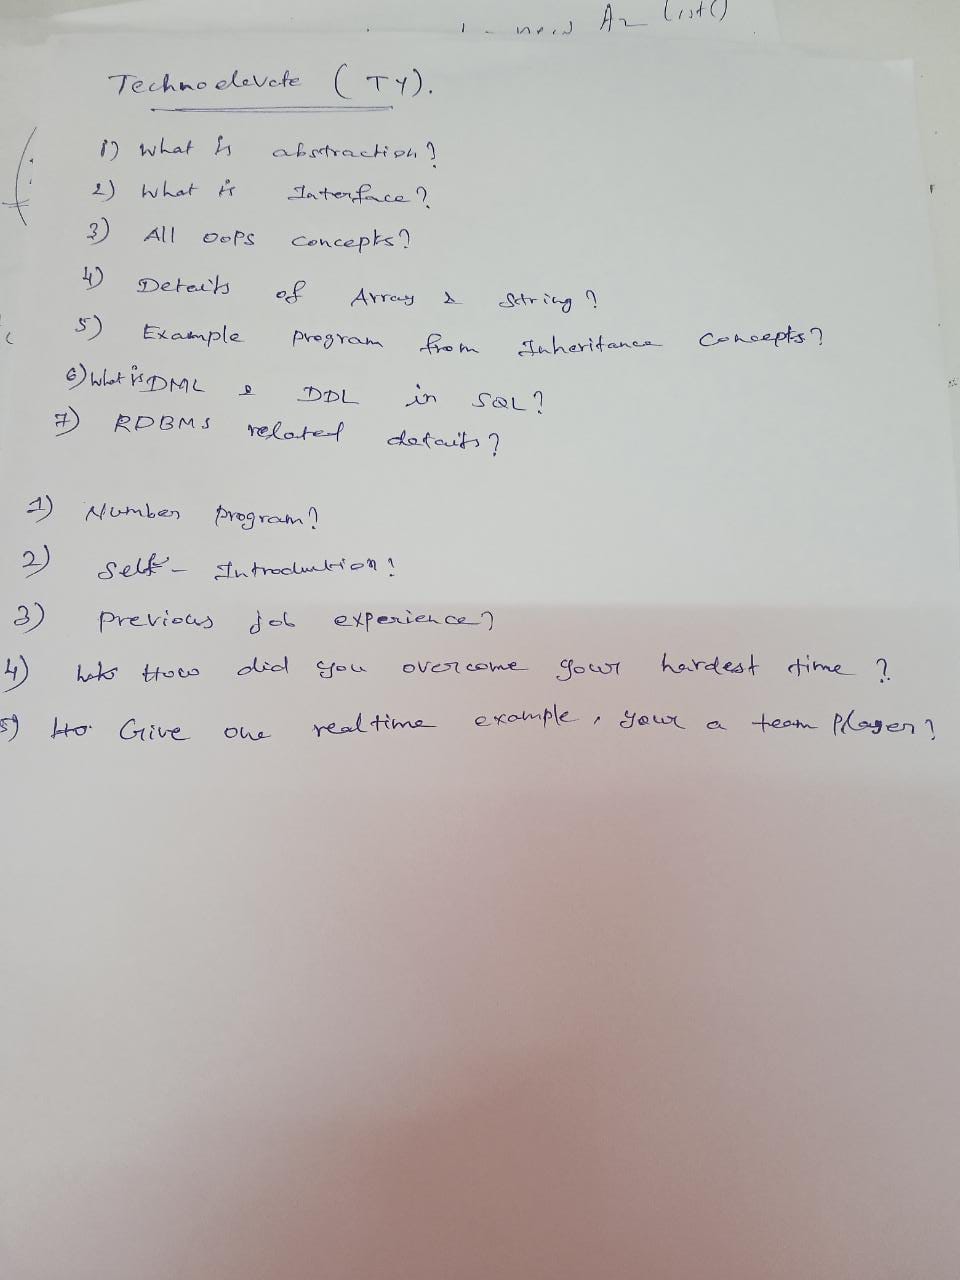 Az list()
Technoelevate (TY).
1) What is abstraction?
2) What is Interface?
3) All OOPS concepts?
4) Details of Array & String?
5) Example program from Inheritance Concepts?
6) What is DML & DDL in SQL?
7) RDBMS related details?
1) Number program?
2) Self- Introduction?
3) Previous job experience?
4) How did you overcome your hardest time ?
5) Give one real time example, your a team Player?